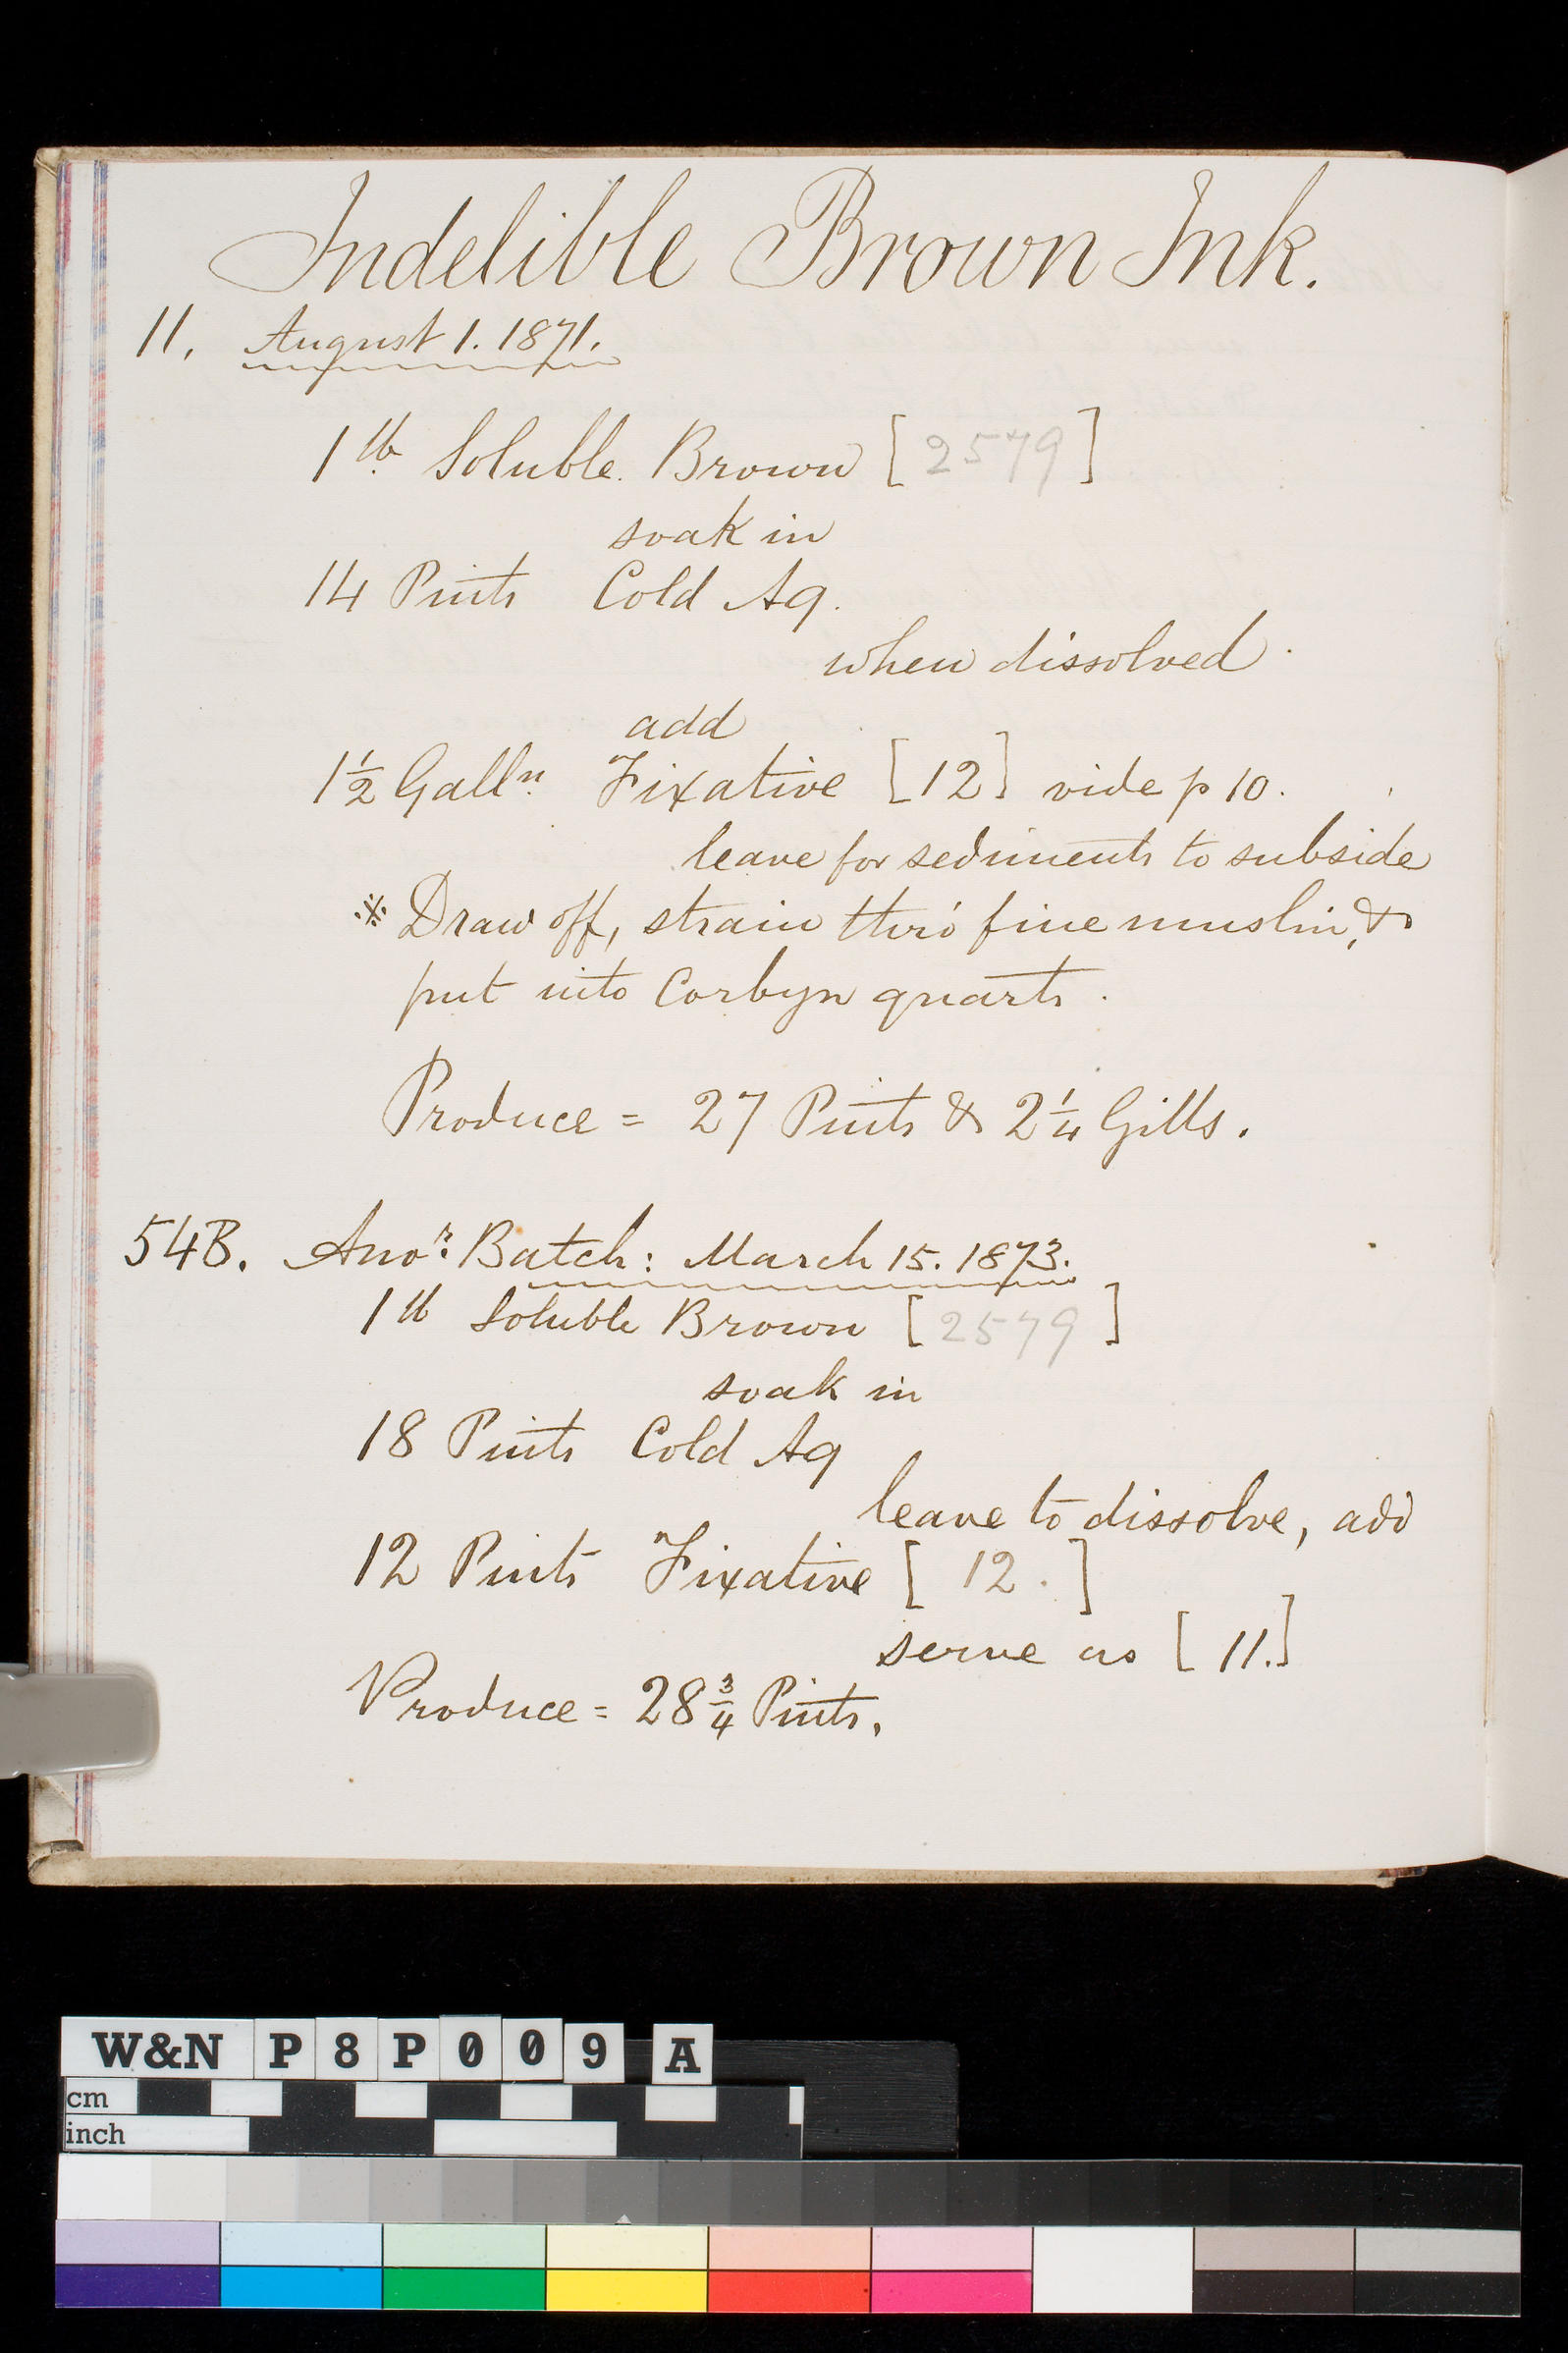 Indelible Brown Ink.
11. August 1. 1871.
1 lb Soluble Brown [2579]
soak in
14 Pints Cold Aq.
when dissolved
add
1½ Galln. Fixative [12] vide p 10.
leave for sediments to subside
※ Draw off, strain thro' fine muslin, &
put into Corbyn quarts.
Produce = 27 Pints & 2¼ Gills.
54B. Anor. Batch: March 15. 1873.
1 lb Soluble Brown [2579]
soak in
18 Pints Cold Aq
leave to dissolve, add
12 Pints Fixative [12.]
serve as [11.]
Produce = 28¾ Pints.
W&N P8P009 A
cm
inch